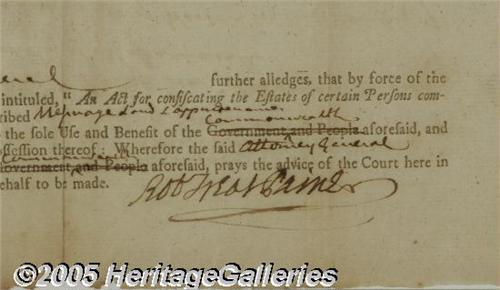 eral
further alledges, that by force of the
intituled, "An Act for confiscating the Estates of certain Persons com-
cribed Messuage Land & appurtenances
Commonwealth
o the sole Use and Benefit of the Government and People aforesaid, and
ossession thereof: Wherefore the said Attorney General
Commonwealth
Government and People aforesaid, prays the advice of the Court here in
ehalf to be made.
Rob Treat Paine
©2005 HeritageGalleries